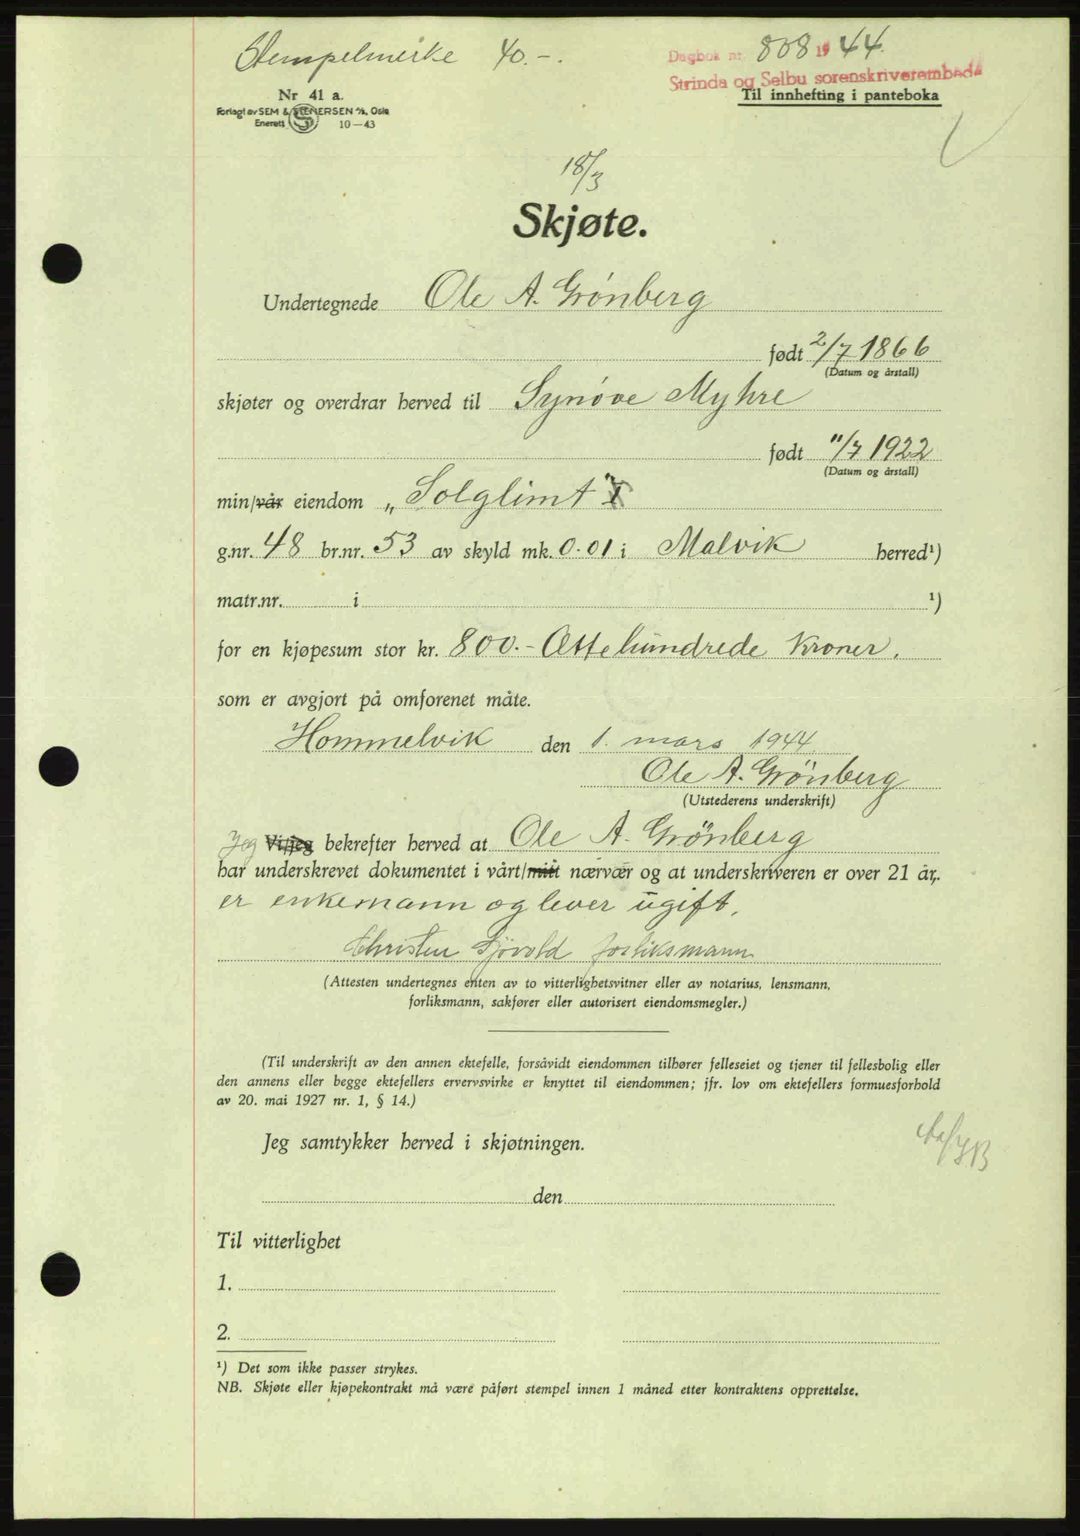 Stempelmerke 40.-.
Dagbok nr. 808 1944.
Strinda og Selbu sorenskriverembede
Nr 41 a.
Til innhefting i panteboka
Forlagt av SEM & STENERSEN A/S, Oslo
Enerett S 10-43
18/3
Skjøte.
Undertegnede Ole A. Grønberg
født 2/7 1866
(Datum og årstall)
skjøter og overdrar herved til Synøve Myhre
født 11/7 1922
(Datum og årstall)
min/vår eiendom „Solglimt"
g.nr. 48 br.nr. 53 av skyld mk. 0.01 i Malvik herred¹)
matr.nr. i ¹)
for en kjøpesum stor kr. 800.- Ottehundrede kroner.
som er avgjort på omforenet måte.
Hommelvik den 1. mars 1944
Ole A. Grönberg
(Utstederens underskrift)
Jeg Vi/jeg bekrefter herved at Ole A. Grönberg
har underskrevet dokumentet i vårt/mitt nærvær og at underskriveren er over 21 år,
er enkemann og lever ugift.
Christen Sjövold forliksmann
(Attesten undertegnes enten av to vitterlighetsvitner eller av notarius, lensmann,
forliksmann, sakfører eller autorisert eiendomsmegler.)
(Til underskrift av den annen ektefelle, forsåvidt eiendommen tilhører felleseiet og tjener til fellesbolig eller
den annens eller begge ektefellers ervervsvirke er knyttet til eiendommen; jfr. lov om ektefellers formuesforhold
av 20. mai 1927 nr. 1, § 14.)
Jeg samtykker herved i skjøtningen.
den
Til vitterlighet
1.
2.
¹) Det som ikke passer strykes.
NB. Skjøte eller kjøpekontrakt må være påført stempel innen 1 måned etter kontraktens opprettelse.